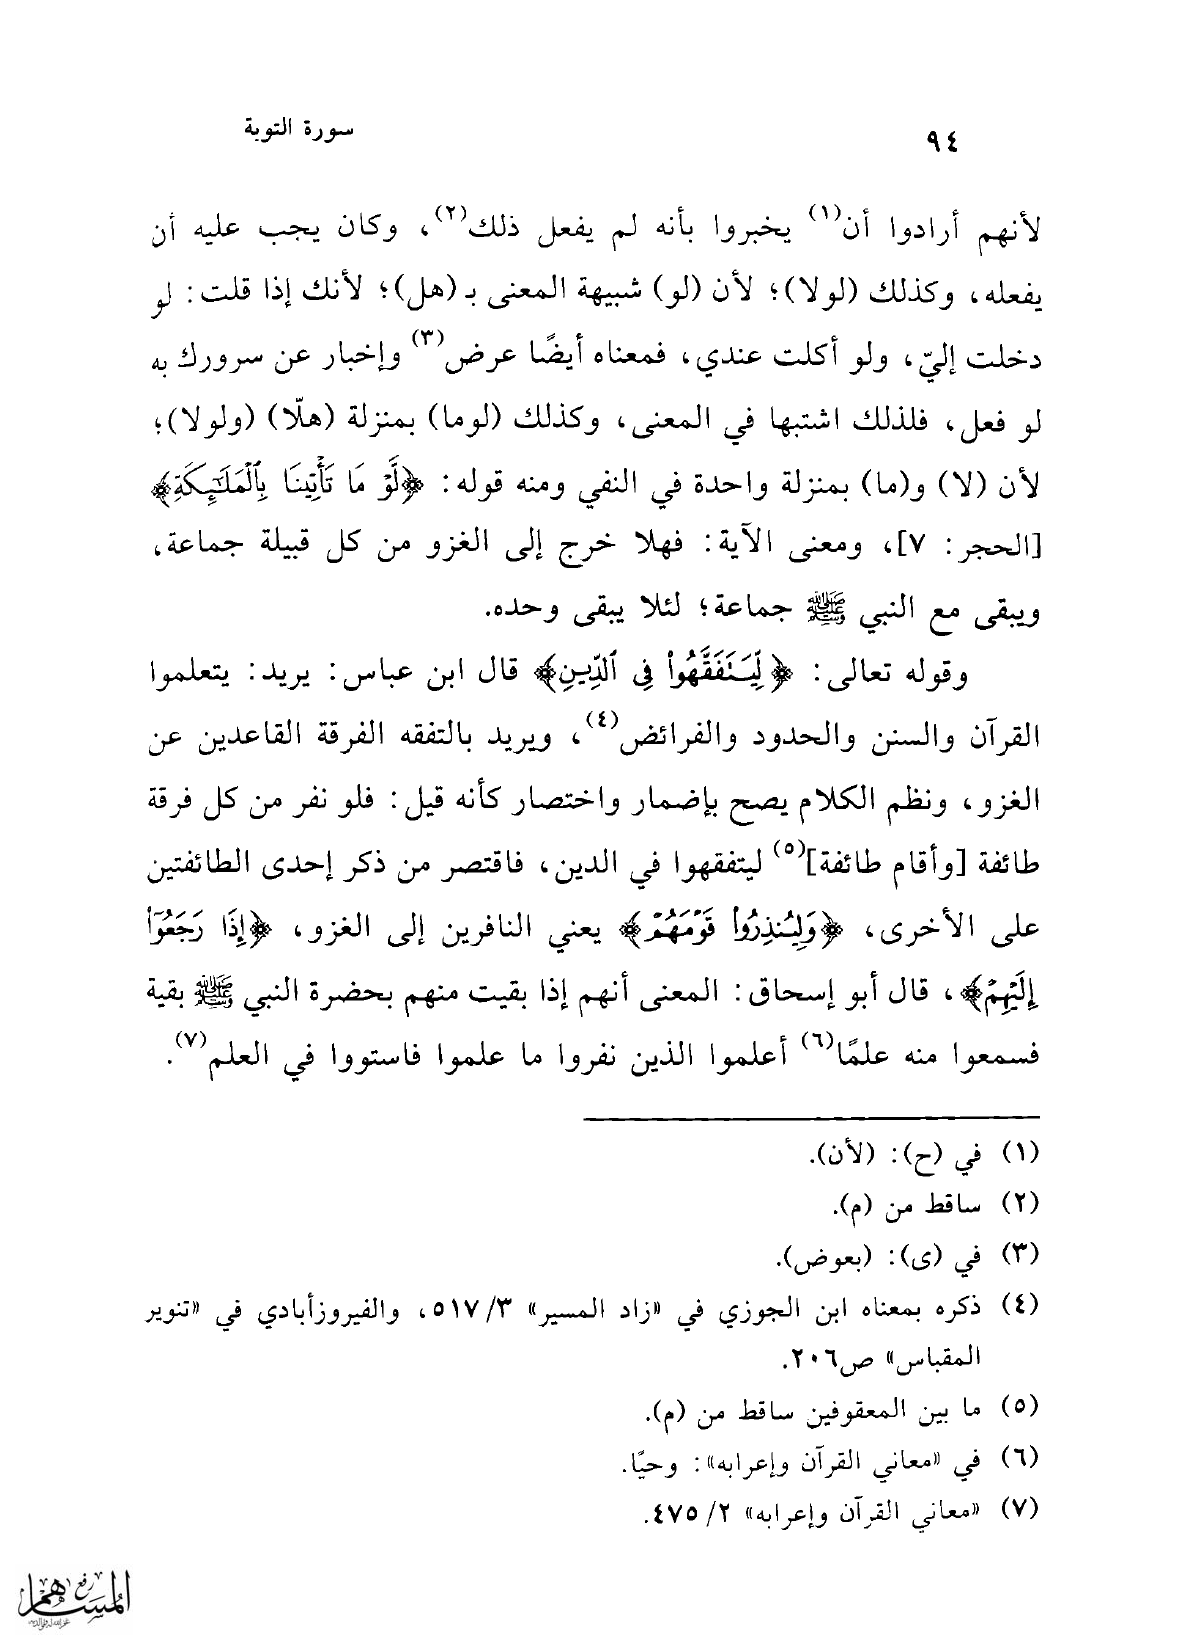 ٩٤
سورة التوبة
لأنهم أرادوا أن(١) يخبروا بأنه لم يفعل ذلك(٢)، وكان يجب عليه أن
يفعله، وكذلك (لولا)؛ لأن (لو) شبيهة المعنى بـ (هل)؛ لأنك إذا قلت: لو
دخلت إليّ، ولو أكلت عندي، فمعناه أيضًا عرض(٣) وإخبار عن سرورك به
لو فعل، فلذلك اشتبها في المعنى، وكذلك (لوما) بمنزلة (هلّا) (ولولا)؛
لأن (لا) و(ما) بمنزلة واحدة في النفي ومنه قوله: ﴿لَّوْ مَا تَأْتِينَا بِالْمَلَٰٓئِكَةِ﴾
[الحجر: ٧]، ومعنى الآية: فهلا خرج إلى الغزو من كل قبيلة جماعة،
ويبقى مع النبي ﷺ جماعة؛ لئلا يبقى وحده.
وقوله تعالى: ﴿لِّيَتَفَقَّهُوا۟ فِى ٱلدِّينِ﴾ قال ابن عباس: يريد: يتعلموا
القرآن والسنن والحدود والفرائض(٤)، ويريد بالتفقه الفرقة القاعدين عن
الغزو، ونظم الكلام يصح بإضمار واختصار كأنه قيل: فلو نفر من كل فرقة
طائفة [وأقام طائفة](٥) ليتفقهوا في الدين، فاقتصر من ذكر إحدى الطائفتين
على الأخرى، ﴿وَلِيُنذِرُوا۟ قَوْمَهُمْ﴾ يعني النافرين إلى الغزو، ﴿إِذَا رَجَعُوٓا۟
إِلَيْهِمْ﴾، قال أبو إسحاق: المعنى أنهم إذا بقيت منهم بحضرة النبي ﷺ بقية
فسمعوا منه علمًا(٦) أعلموا الذين نفروا ما علموا فاستووا في العلم(٧).
(١) في (ح): (لأن).
(٢) ساقط من (م).
(٣) في (ى): (بعوض).
(٤) ذكره بمعناه ابن الجوزي في «زاد المسير» ٣/ ٥١٧، والفيروزأبادي في «تنوير
المقباس» ص٢٠٦.
(٥) ما بين المعقوفين ساقط من (م).
(٦) في «معاني القرآن وإعرابه»: وحيًا.
(٧) «معاني القرآن وإعرابه» ٢/ ٤٧٥.